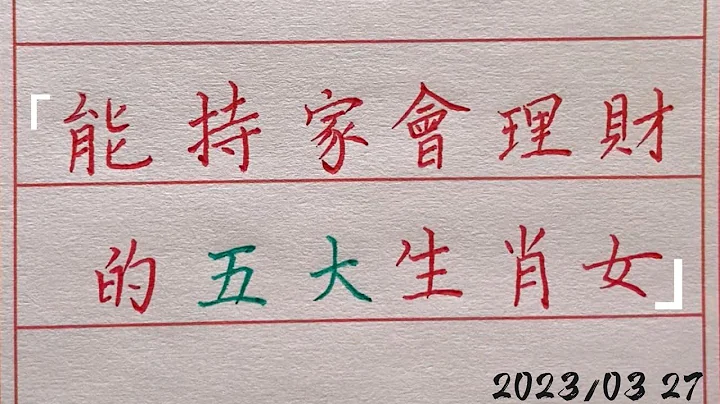 「能持家會理財
的五大生肖女」
2023/03 27